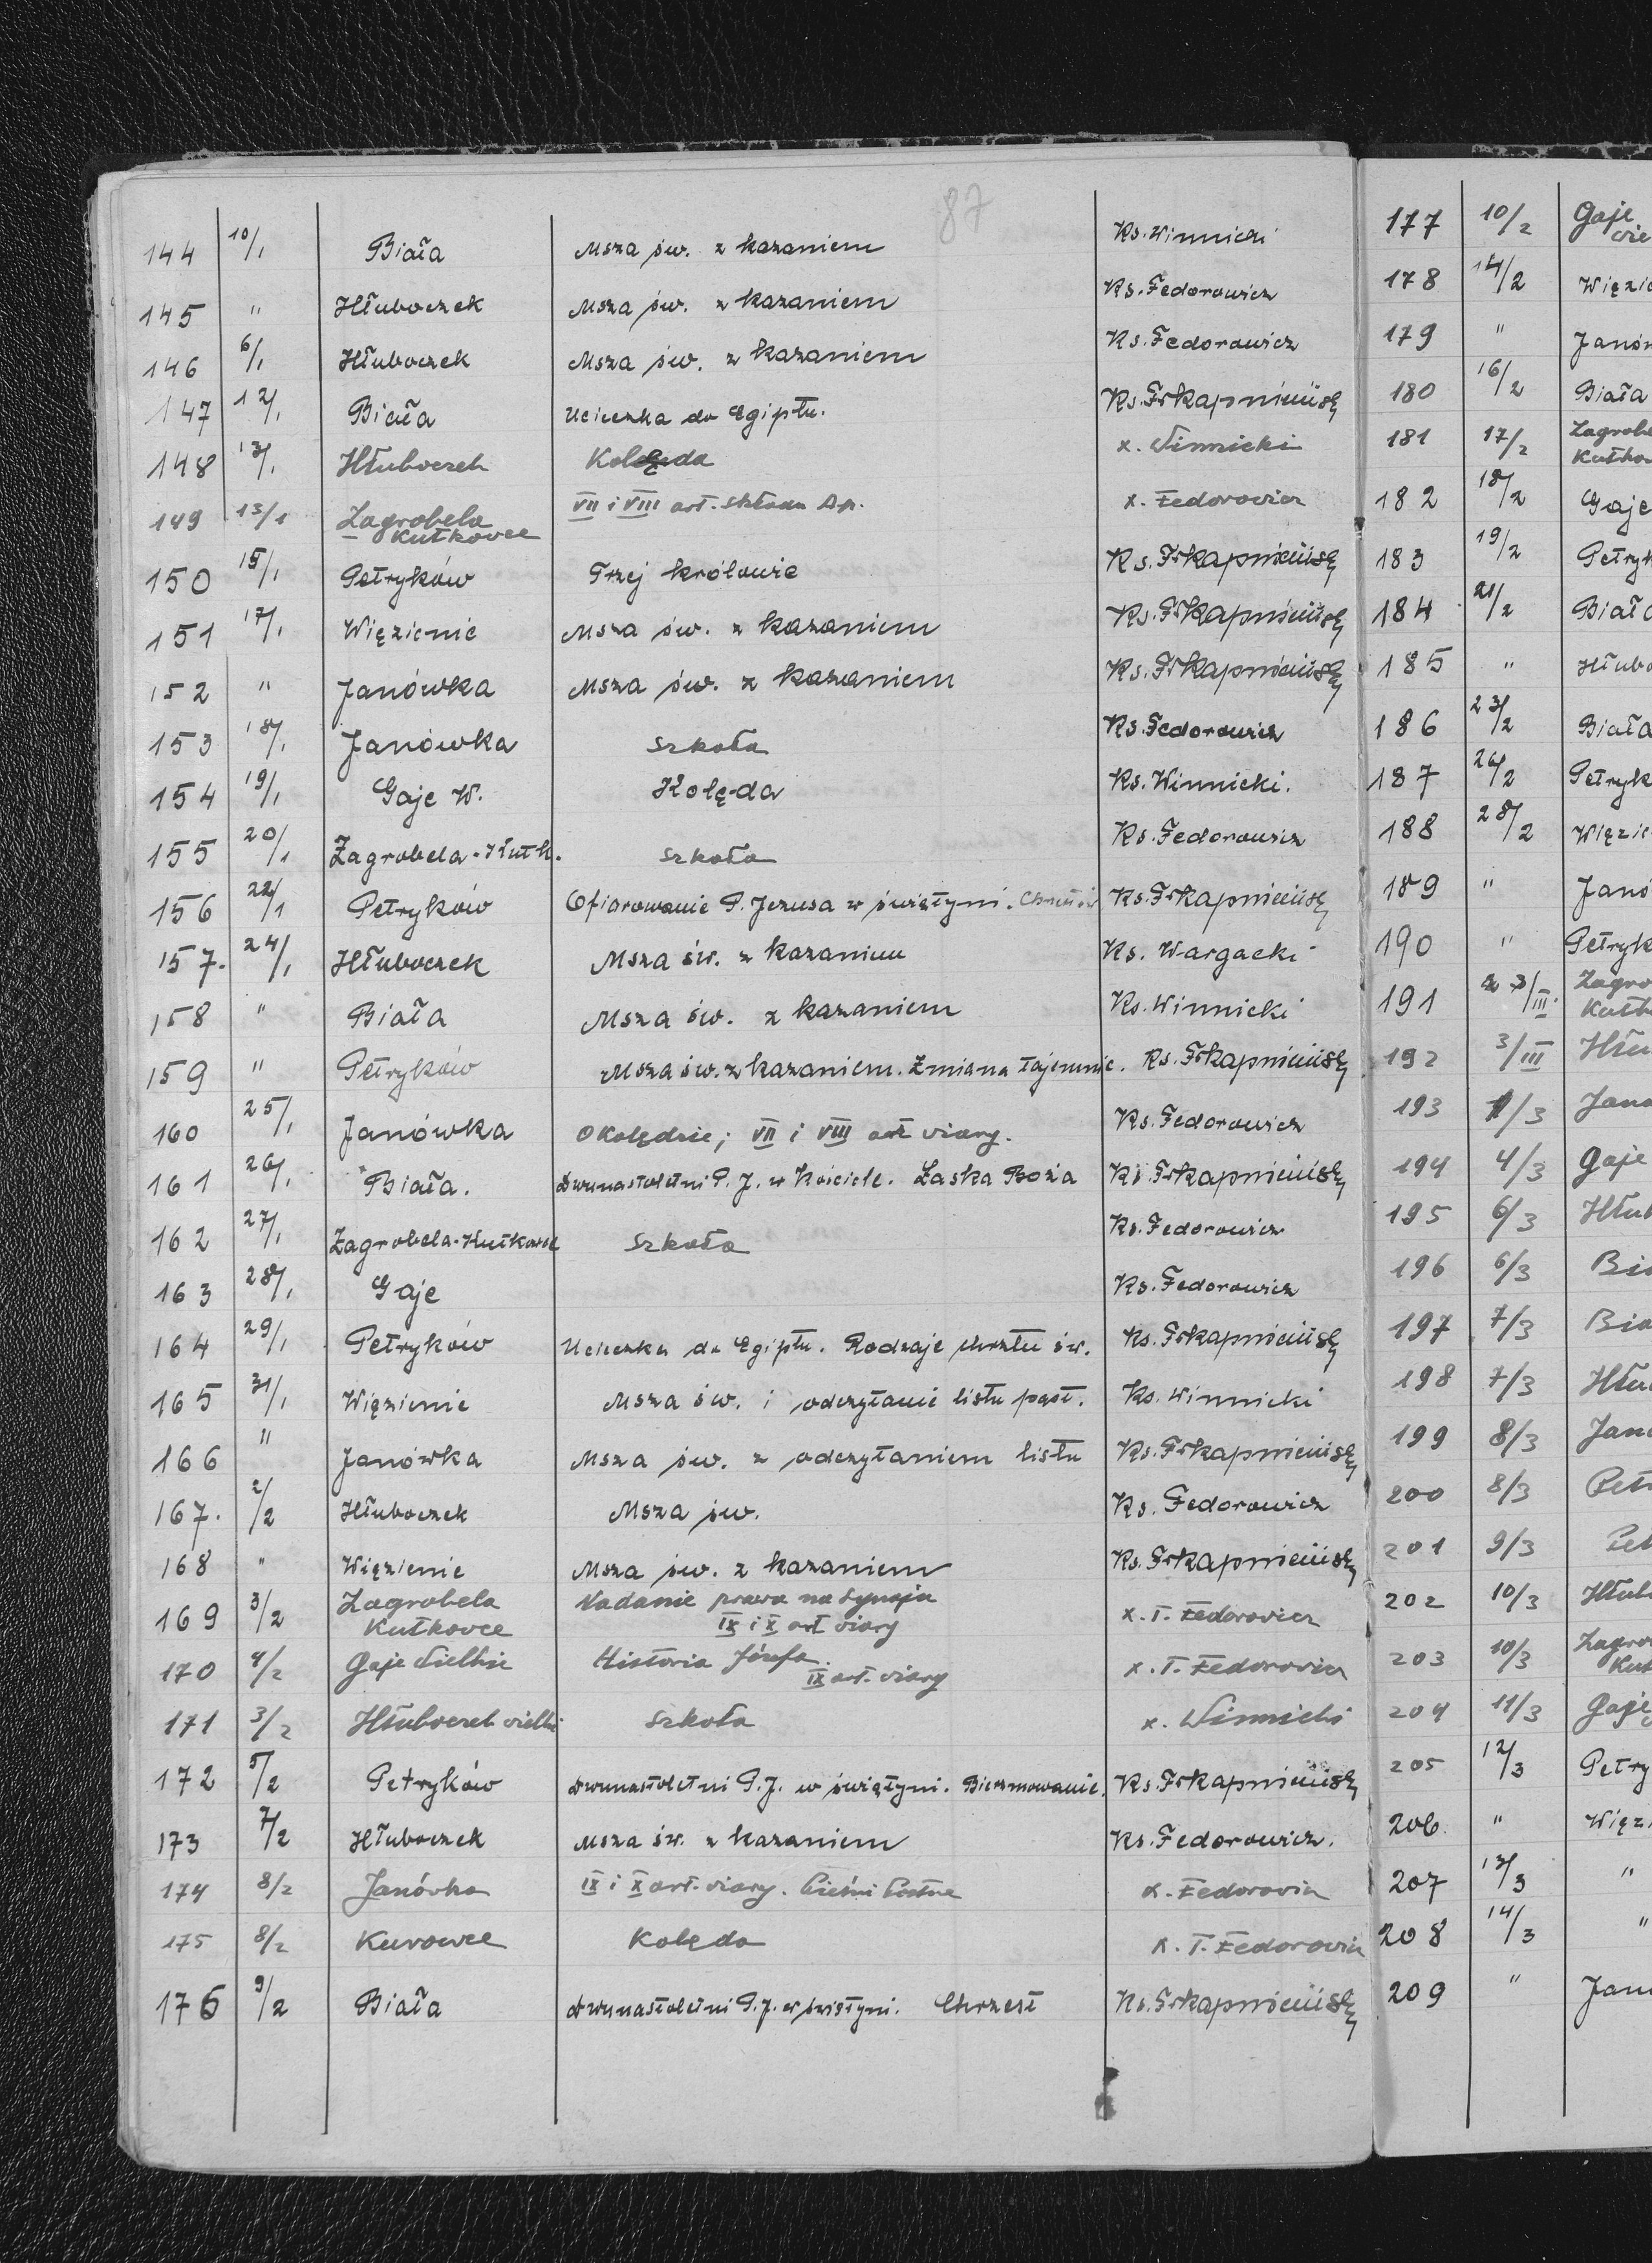 87
144 10/1 Biała Msza św. z kazaniem Ks. Winnicki
145 " Hłuboczek Msza św. z kazaniem Ks. Fedorowicz
146 6/1 Hłuboczek Msza św. z kazaniem Ks. Fedorowicz
147 12/1 Biała Ucieczka do Egiptu. Ks.
148 13/1 Hłuboczek Kolęda x. Winnicki
149 13/1 Zagrobela VII i VIII art. Składu Ap. x. Fedorowicz
Kutkowce
150 15/1 Petryków Trzej królowie Ks.
151 17/1 Więzienie Msza św. z kazaniem Ks.
152 " Janówka Msza św. z kazaniem Ks.
153 18/1 Janówka Szkoła Ks. Fedorowicz
154 19/1 Gaje W. Kolęda Ks. Winnicki.
155 20/1 Zagrobela-Kutk. Szkoła Ks. Fedorowicz
156 22/1 Petryków Ofiarowanie P. Jezusa w świątyni. Ks.
157. 24/1 Hłuboczek Msza św. z kazaniem Ks. Wargacki
158 " Biała Msza św. z kazaniem Ks. Winnicki
159 " Petryków Msza św. z kazaniem. Zmiana tajemnic. Ks.
160 25/1 Janówka O Kolędzie; VII i VIII art wiary. Ks. Fedorowicz
161 26/1 Biała. Dwunastoletni P. J. w Kościele. Łaska Boża Ks.
162 27/1 Zagrobela-Kutkowce Szkoła Ks. Fedorowicz
163 28/1 Gaje Ks. Fedorowicz
164 29/1 Petryków Ucieczka do Egiptu. Rodzaje chrztu św. Ks.
165 31/1 Więzienie Msza św. i odczytanie listu past. Ks. Winnicki
166 " Janówka Msza św. z odczytaniem listu Ks.
167. 2/2 Hłuboczek Msza św. Ks. Fedorowicz
168 " Więzienie Msza św. z kazaniem Ks.
169 3/2 Zagrobela Nadanie prawa na Synaju x. T. Fedorowicz
Kutkowce IX i X art wiary
170 4/2 Gaje Wielkie Historia Józefa. x. T. Fedorowicz
IX art. wiary
171 3/2 Hłuboczek wielki Szkoła x. Winnicki
172 5/2 Petryków Dwunastoletni P. J. w świątyni. Bierzmowanie. Ks.
173 7/2 Hłuboczek Msza św. z kazaniem Ks. Fedorowicz.
174 8/2 Janówka IX i X art. wiary. Pieśni Postne x. Fedorowicz
175 8/2 Kurowce Kolęda x. T. Fedorowicz
176 9/2 Biała Dwunastoletni P. J. w świątyni. Chrzest Ks.
177 10/2 Gaje
wie
178 14/2 Więzie
179 " Janów
180 16/2 Biała
181 17/2 Zagrobe
Kutko
182 18/2 Gaje
183 19/2 Petryk
184 21/2 Biała
185 " Hłubo
186 23/2 Biała
187 26/2 Petryk
188 28/2 Więzie
189 " Janó
190 " Petryk
191 3/III. Zagro
Kutk
192 3/III Hłu
193 1/3 Jano
194 4/3 Gaje
195 6/3 Hłub
196 6/3 Bia
197 7/3 Bia
198 7/3 Hłu
199 8/3 Jan
200 8/3 Pet
201 9/3 Pet
202 10/3 Hłub
203 10/3 Zagro
Kut
204 11/3 Gaje
205 12/3 Petry
206. " Więzi
207 13/3 "
208 14/3 "
209 " Jan